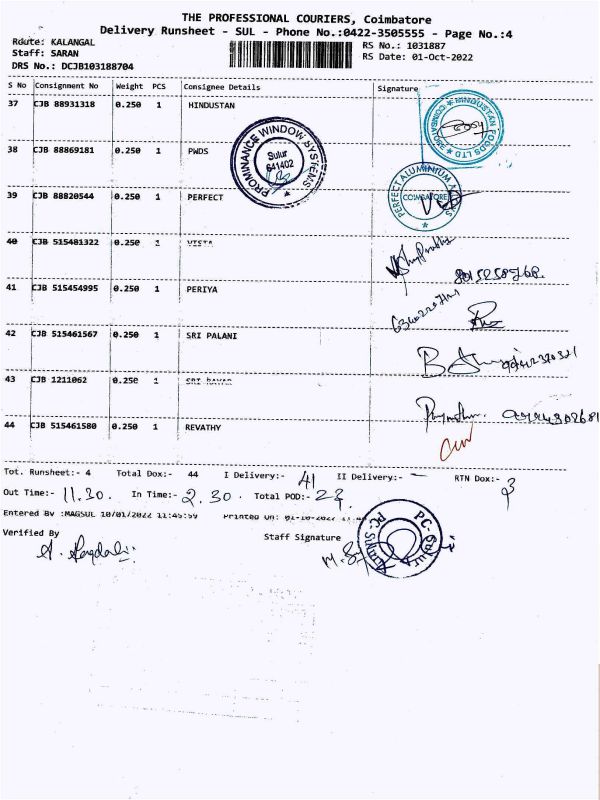 THE PROFESSIONAL COURIERS, Coimbatore
Delivery Runsheet - SUL - Phone No.:0422-3505555 - Page No.:4
Route: KALANGAL
Staff: SARAN
DRS No.: DCJB103188704
RS No.: 1031887
RS Date: 01-Oct-2022
S No Consignment No Weight PCS Consignee Details Signature
37 CJB 88931318 0.250 1 HINDUSTAN
HINDUSTAN FOODS LTD
38 CJB 88869181 0.250 1 PWDS
PROMINANCE WINDOW SYSTEMS
Sulur
641402
39 CJB 88820544 0.250 1 PERFECT
PERFECT ALUMINIUM
COIMBATORE
40 CJB 515481322 0.250 1 VISTA
41 CJB 515454995 0.250 1 PERIYA
42 CJB 515461567 0.250 1 SRI PALANI
43 CJB 1211062 0.250 1 SRI
44 CJB 515461580 0.250 1 REVATHY
Tot. Runsheet:- 4 Total Dox:- 44 I Delivery:- 41 II Delivery:- - RTN Dox:- 3
Out Time:- 11.30. In Time:- 2.30. Total POD:-
Entered By :MAGSUL 10/01/2022 11:45:59 Printed On:
Verified By
Staff Signature
PC-Sulur